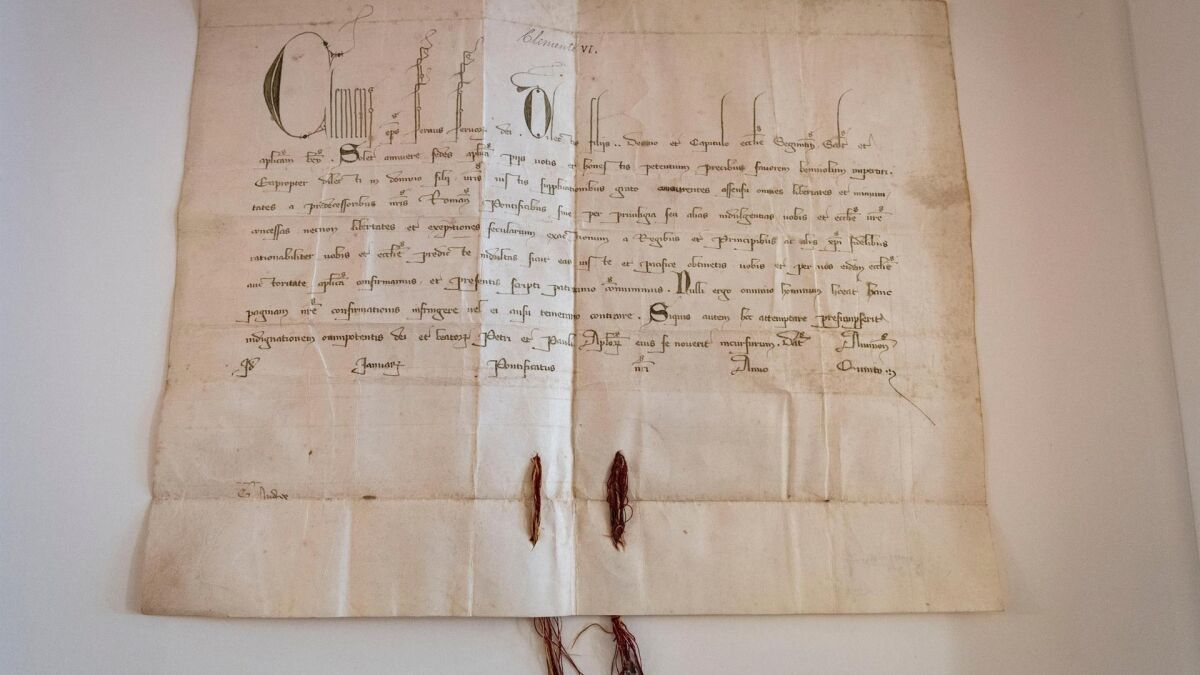 Clemente VI.
Clemens eps servus servor dei. Dilectis filiis.. Decano et Capitulo ecclie Salt et
aplicam ben. Solet annuere sedes aplica piis votis et honestis petentium precibus favorem benivolum impertiri.
Eapropter dilecti in domino filii vris iustis supplicationibus grato concurrentes assensu omnes libertates et inmuni
tates a predecessoribus nris Roman Pontificibus sive per privilegia seu alias indulgentias vobis et ecclie vre
concessas necnon libertates et exeptiones secularium exactionum a Regibus et Principibus ac aliis xpi fidelibus
rationabiliter vobis et ecclie predicte indultas sicut eas iuste et pacifice obtinetis vobis et per vos eidem ecclie
auctoritate aplica confirmamus et presentis scripti patrocinio communimus. Nulli ergo omnino hominum liceat hanc
paginam nre confirmationis infringere vel ei ausu temerario contraire. Siquis autem hoc attemptare presumpserit
indignationem omnipotentis dei et beator Petri et Pauli Aplor eius se noverit incursurum. Dat Avinion
Id Januar Pontificatus nri Anno Quinto
Andree